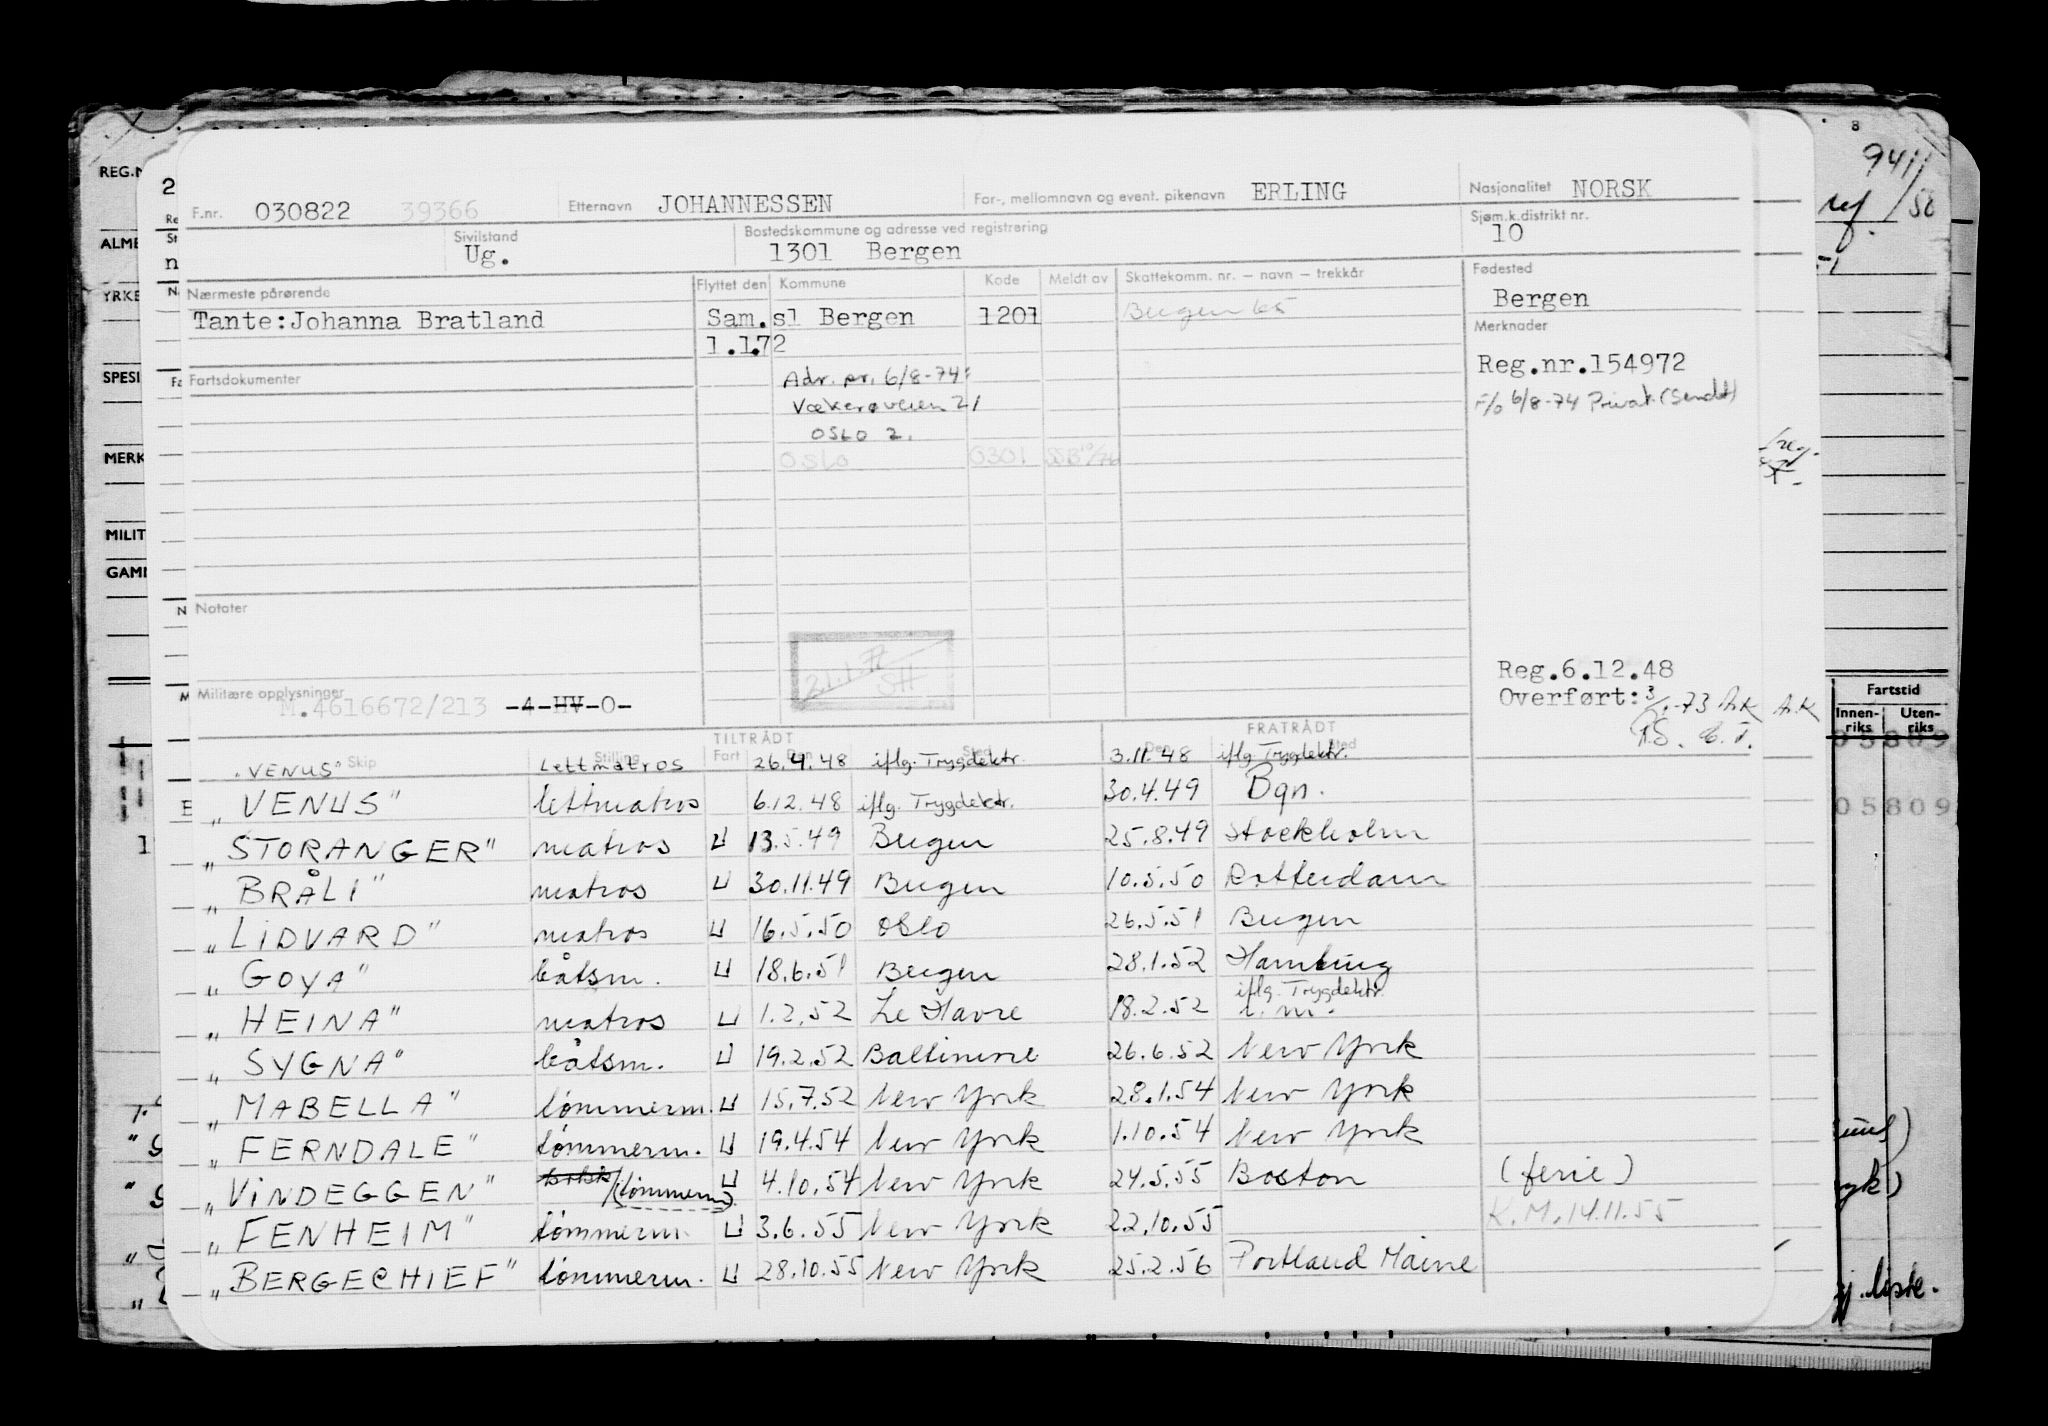 F.nr. 030822 39366 Etternavn JOHANNESSEN For-, mellomnavn og event. pikenavn ERLING Nasjonalitet NORSK
Sivilstand Ug. Bostedskommune og adresse ved registrering 1301 Bergen Sjøm.k.distrikt nr. 10
Nærmeste pårørende Flyttet den Kommune Kode Meldt av Skattekomm. nr. – navn – trekkår Fødested
Tante:Johanna Bratland Sam.sl Bergen 1201 Bergen 65 Bergen
1.1.72 Merknader
Fartsdokumenter Adr. pr. 6/8-74: Reg.nr.154972
Vækerøveien 21 F/o 6/8-74 Privat (Sendt)
OSLO 2.
OSLO 0301
Notater
21.1.77 SH
Reg.6.12.48
Militære opplysninger M.4616672/213 -4-HV-O- Overført:
TILTRÅDT FRATRÅDT
Skip Stilling Fart Den Sted Den Sted
"VENUS" Lettmatros 26.4.48 iflg. Trygdektr. 3.11.48 iflg. Trygdektr.
"VENUS" lettmatros 6.12.48 iflg. Trygdektr. 30.4.49 Bgn.
"STORANGER" matros U 13.5.49 Bergen 25.8.49 Stockholm
"BRÅLI" matros U 30.11.49 Bergen 10.5.50 Rotterdam
"LIDVARD" matros U 16.5.50 Oslo 26.5.51 Bergen
"GOYA" båtsm. U 18.6.51 Bergen 28.1.52 Hamburg
"HEINA" matros U 1.2.52 Le Havre 18.2.52 iflg. Trygdektr.
"SYGNA" båtsm. U 19.2.52 Baltimore 26.6.52 New York
"MABELLA" tømmerm. U 15.7.52 New York 28.1.54 New York
"FERNDALE" tømmerm. U 19.4.54 New York 1.10.54 New York
"VINDEGGEN" (tømmerm) U 4.10.54 New York 24.5.55 Boston (ferie)
"FENHEIM" tømmerm. U 3.6.55 New York 22.10.55 K.M. 14.11.55
"BERGECHIEF" tømmerm. U 28.10.55 New York 25.2.56 Portland Maine
Fartstid
Innen-riks Uten-riks
05809
05809